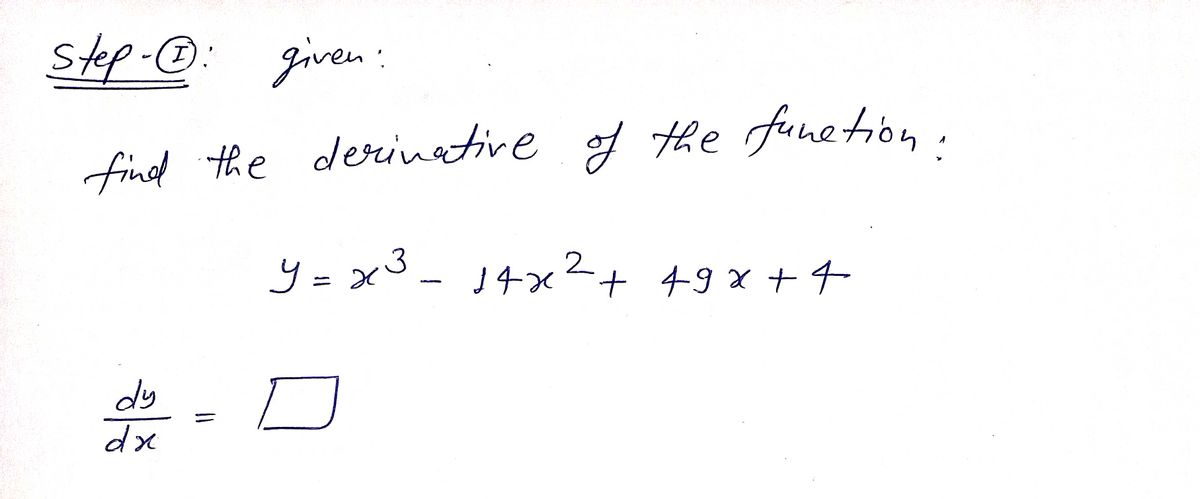 Step-Ⓘ: given:
find the derivative of the function:
y = x³ - 14x² + 49x + 4
dy/dx = □